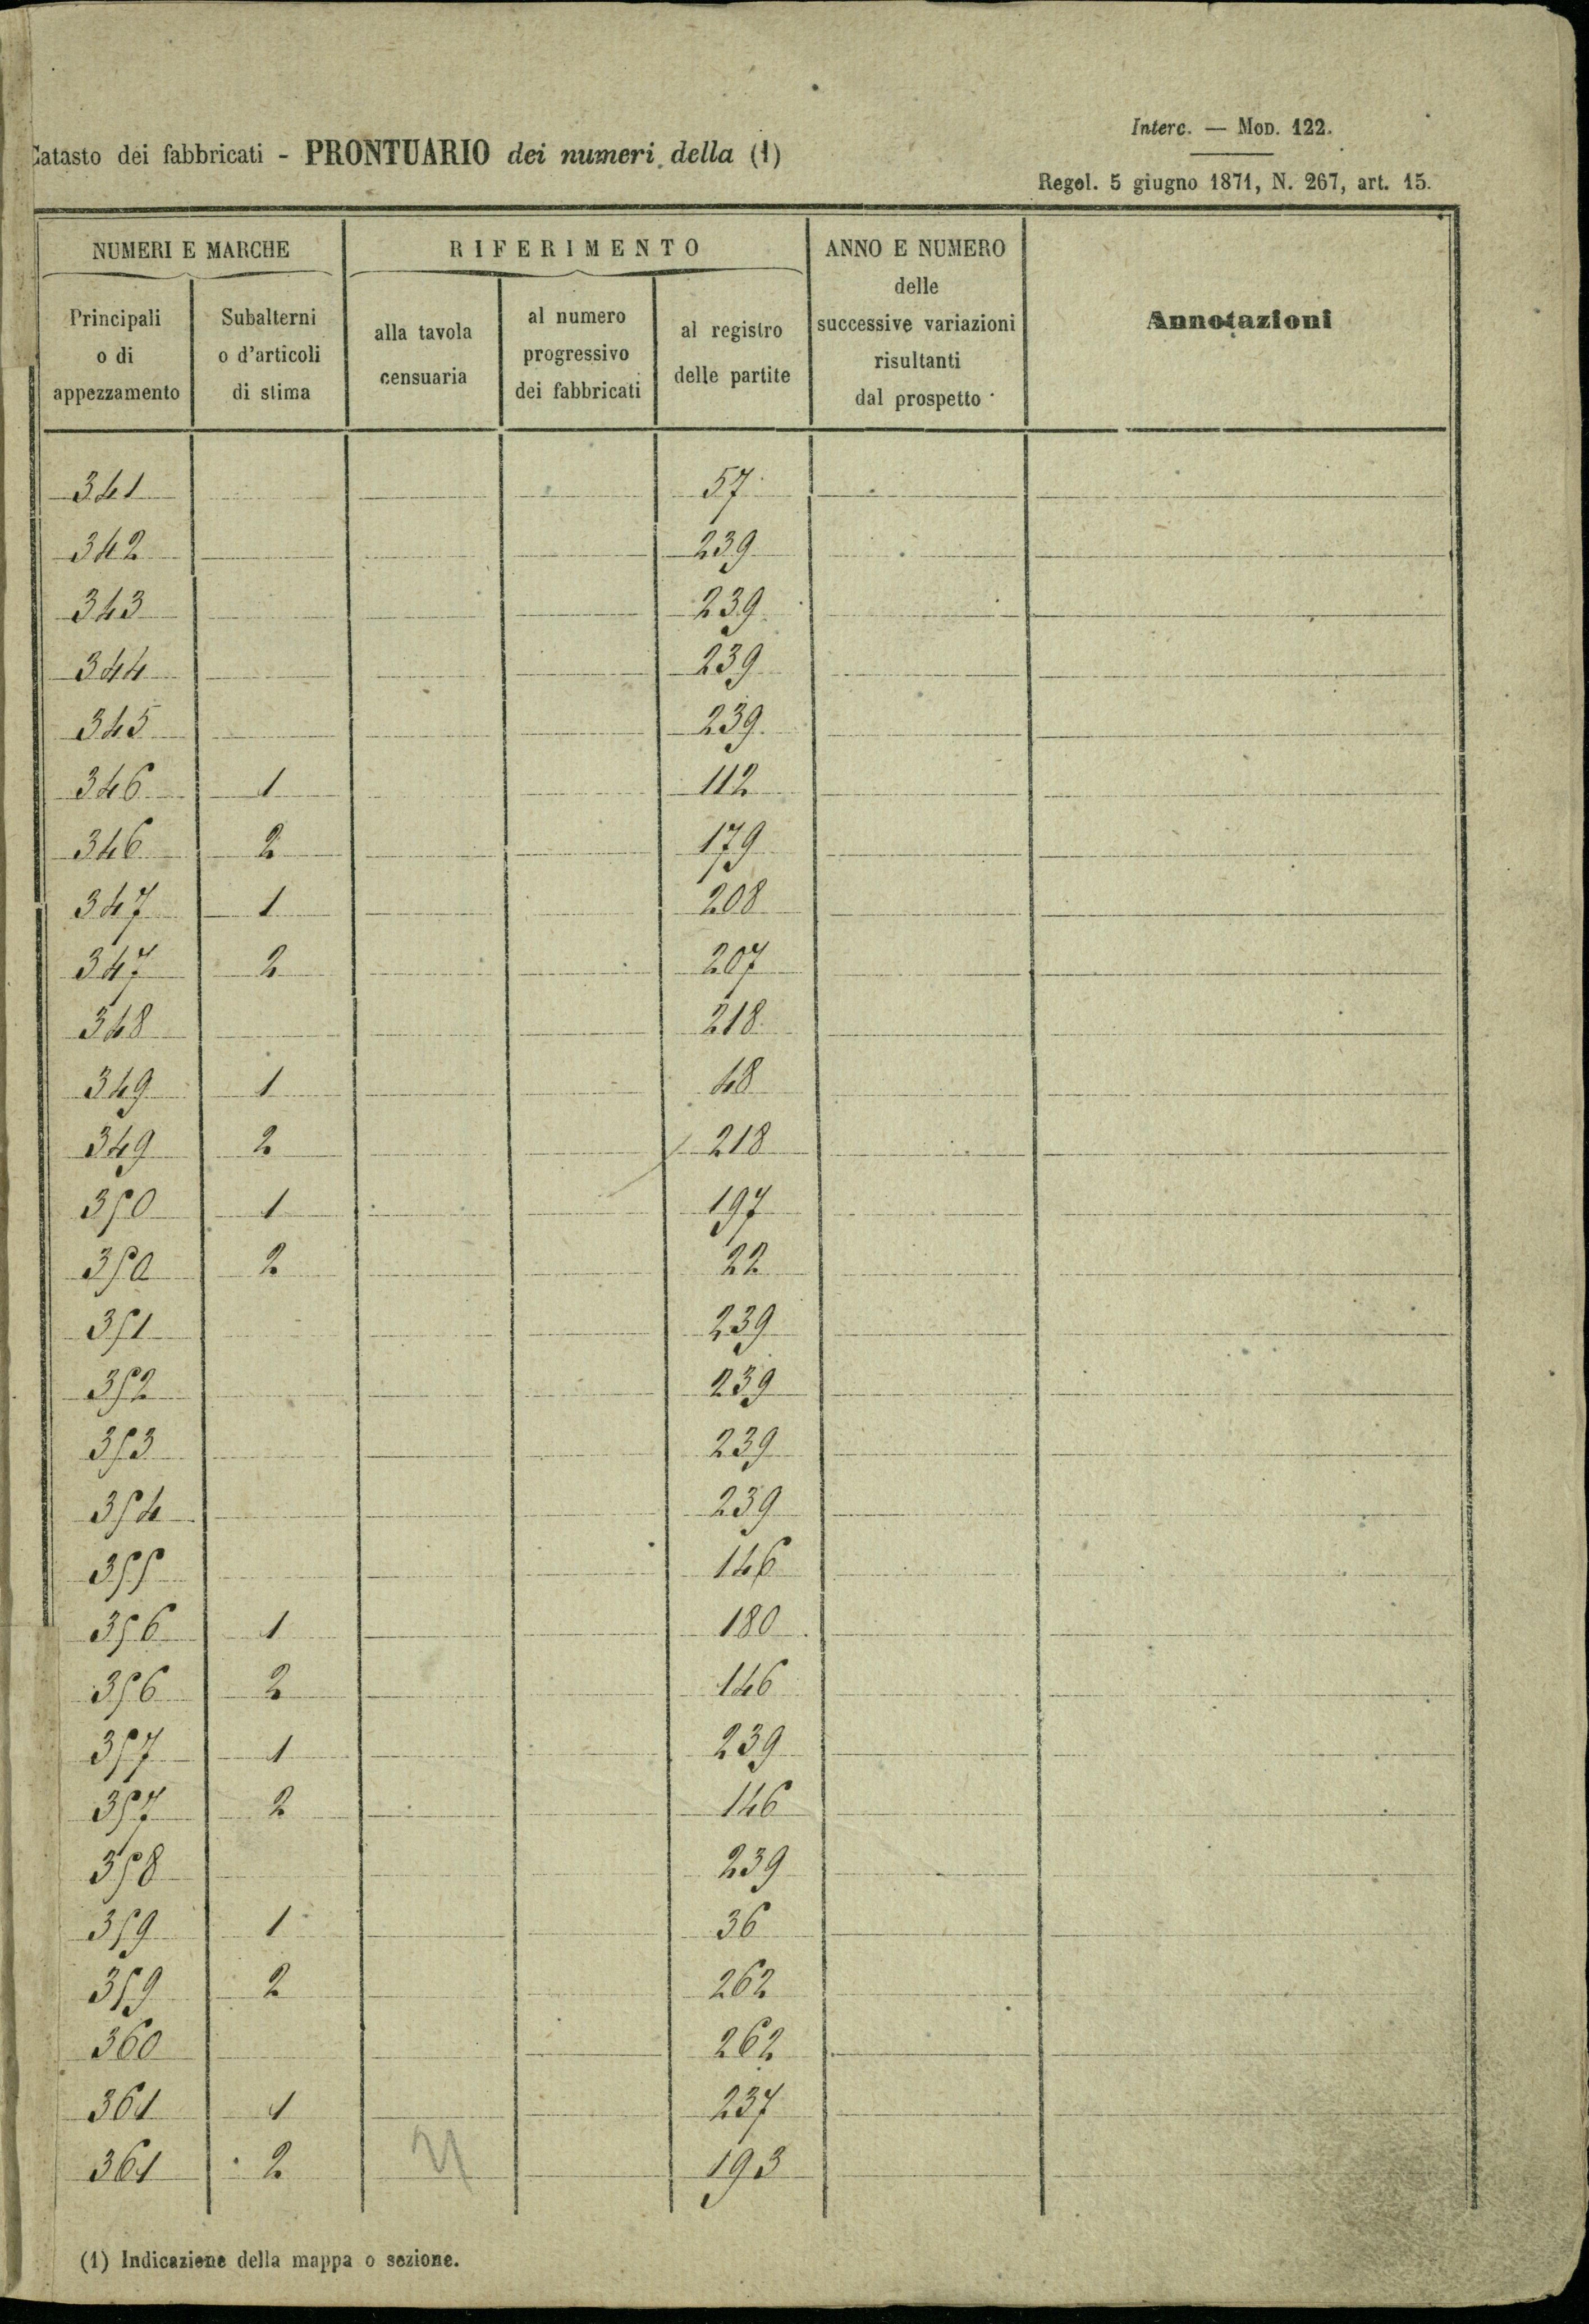 Catasto dei fabbricati - PRONTUARIO dei numeri della (1)
Interc. — Mod. 122.
Regol. 5 giugno 1871, N. 267, art. 15.
NUMERI E MARCHE RIFERIMENTO ANNO E NUMERO delle successive variazioni risultanti dal prospetto Annotazioni
Principali o di appezzamento Subalterni o d'articoli di stima alla tavola censuaria al numero progressivo dei fabbricati al registro delle partite
341 57
342 239
343 239
344 239
345 239
346 1 112
346 2 179
347 1 208
347 2 207
348 218
349 1 48
349 2 218
350 1 197
350 2 22
351 239
352 239
353 239
354 239
355 146
356 1 180
356 2 146
357 1 239
357 2 146
358 239
359 1 36
359 2 262
360 262
361 1 237
361 2 193
(1) Indicazione della mappa o sezione.